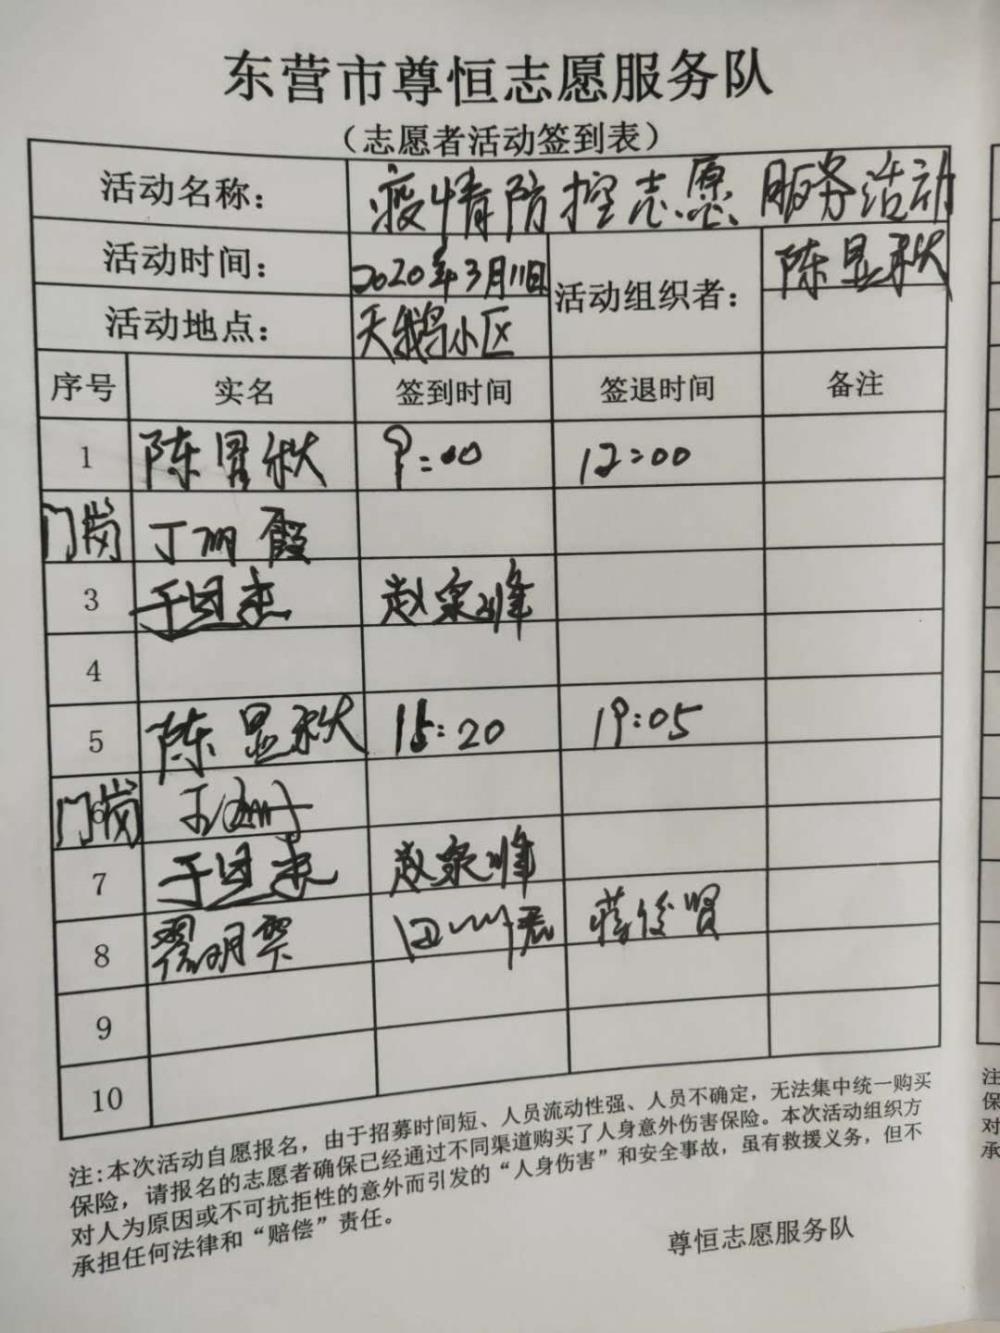 东营市尊恒志愿服务队
（志愿者活动签到表）
活动名称： 疫情防控志愿服务活动
活动时间： 2020年3月11日 活动组织者： 陈显秋
活动地点： 天鹅小区
序号 实名 签到时间 签退时间 备注
1 陈显秋 9:00 12:00
门岗 丁丽霞
3 于国杰 赵泉峰
4
5 陈显秋 15:20 19:05
门岗 6
7 于国杰 赵泉峰
8 翟明 蒋俊贤
9
10
注:本次活动自愿报名，由于招募时间短、人员流动性强、人员不确定，无法集中统一购买
保险，请报名的志愿者确保已经通过不同渠道购买了人身意外伤害保险。本次活动组织方
对人为原因或不可抗拒性的意外而引发的“人身伤害”和安全事故，虽有救援义务，但不
承担任何法律和“赔偿”责任。
尊恒志愿服务队
注
保
对
承